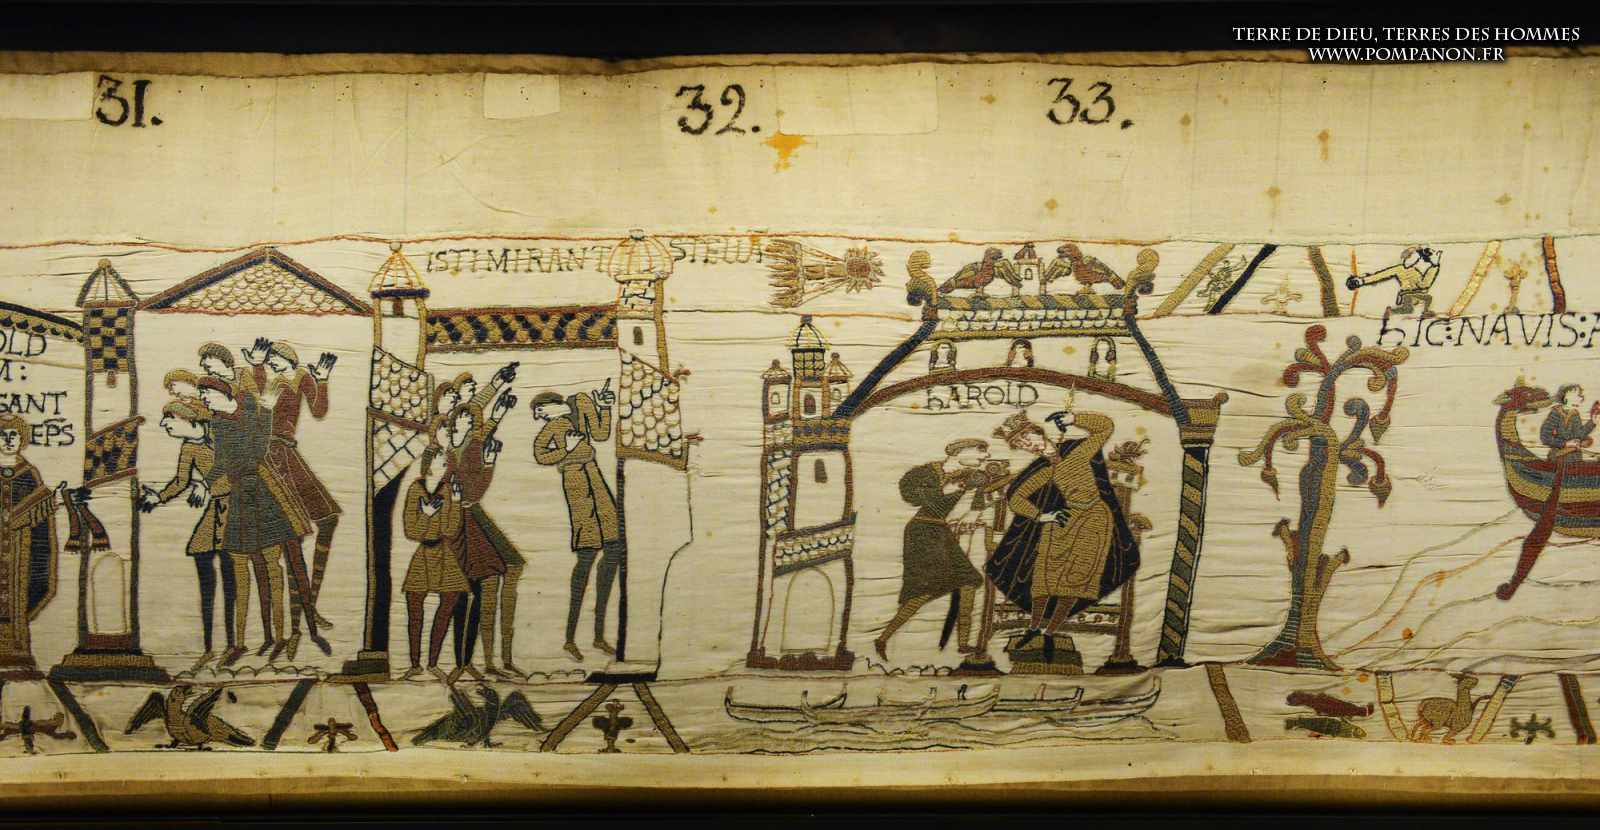 TERRE DE DIEU, TERRES DES HOMMES
WWW.POMPANON.FR
31.
32.
33.
ISTI MIRANT STELLA
OLD
M:
GANT
EPS
HAROLD
HIC:NAVIS:A